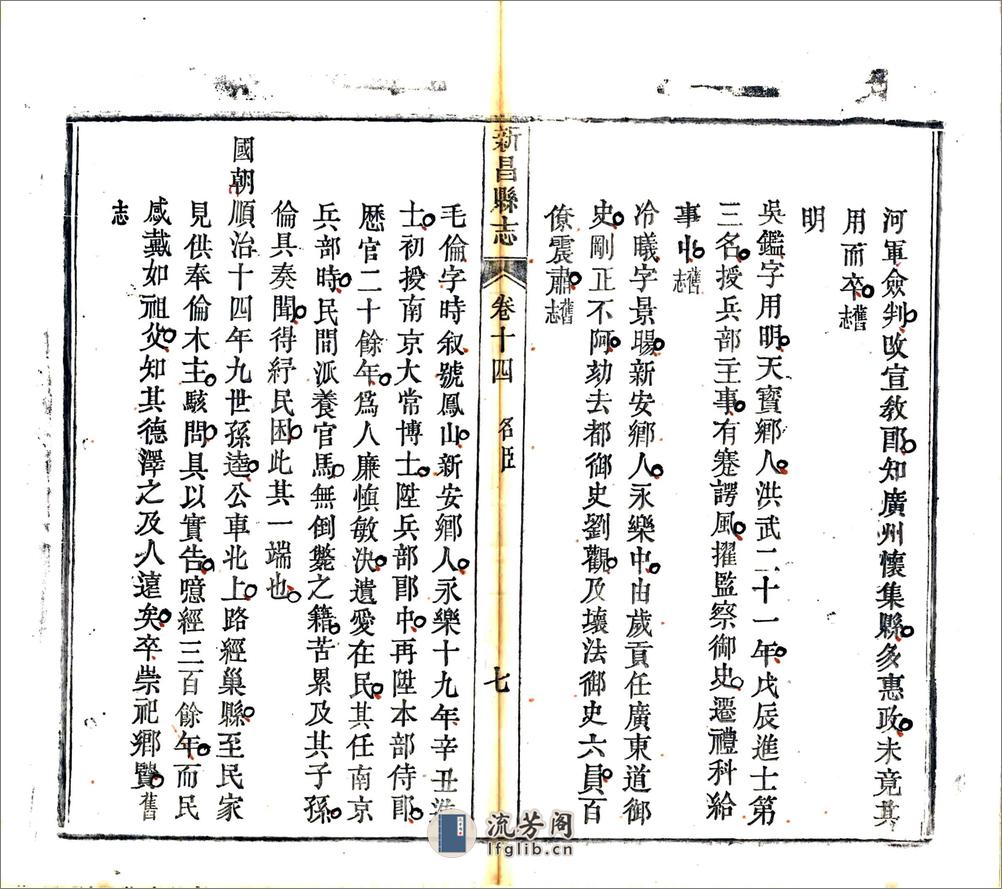 河軍僉判改宣敎郎知廣州懷集縣多惠政未竟其
用而卒舊志
明
吳鑑字用明天寶鄉人洪武二十一年戊辰進士第
三名授兵部主事有蹇諤風擢監察御史遷禮科給
事中舊志
冷曦字景暘新安鄉人永樂中由歲貢任廣東道御
史剛正不阿劾去都御史劉觀及壞法御史六員百
僚震肅舊志
新昌縣志 卷十四 名臣 七
毛倫字時叙號鳳山新安鄉人永樂十九年辛丑進
士初授南京大常博士陞兵部郎中再陞本部侍郎
歷官二十餘年爲人廉慎敏決遺愛在民其任南京
兵部時民間派養官馬無倒斃之籍苦累及其子孫
倫具奏聞得紓民困此其一端也
國朝順治十四年九世孫逵公車北上路經巢縣至民家
見供奉倫木主駭問具以實告噫經三百餘年而民
咸戴如祖父知其德澤之及人遠矣卒崇祀鄉賢舊
志
流芳阁
lfglib.cn